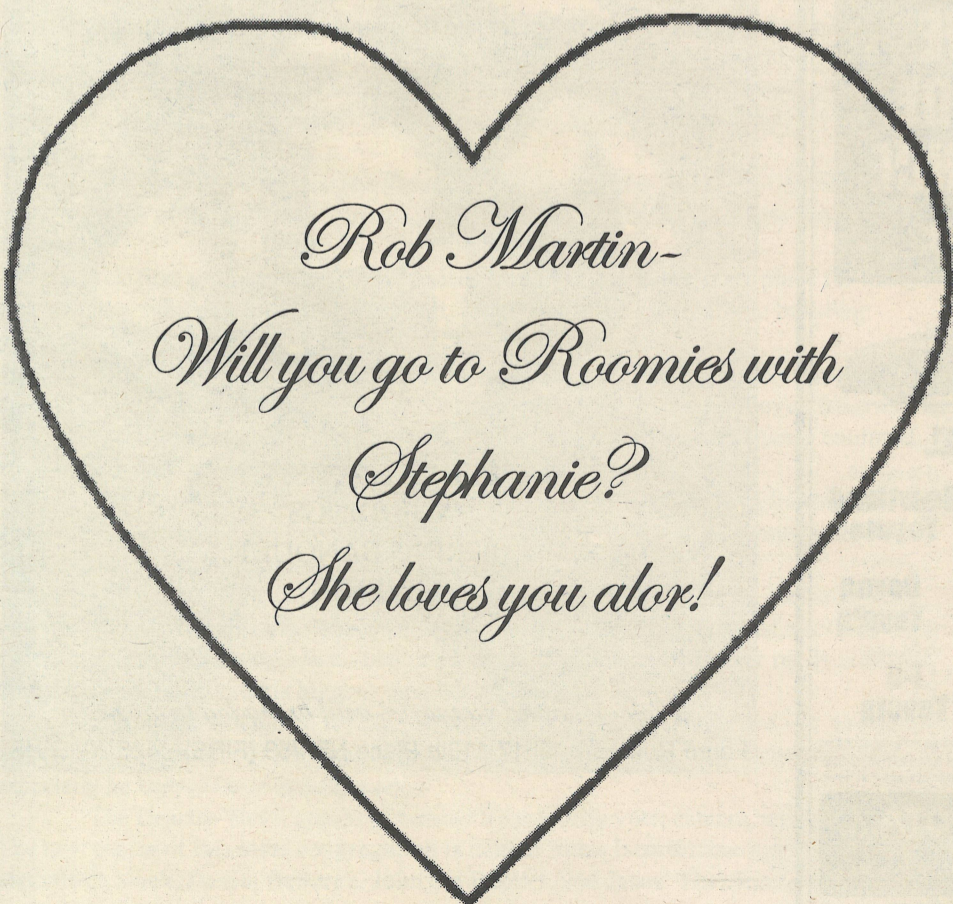 Rob Martin-
Will you go to Roomies with
Stephanie?
She loves you alor!